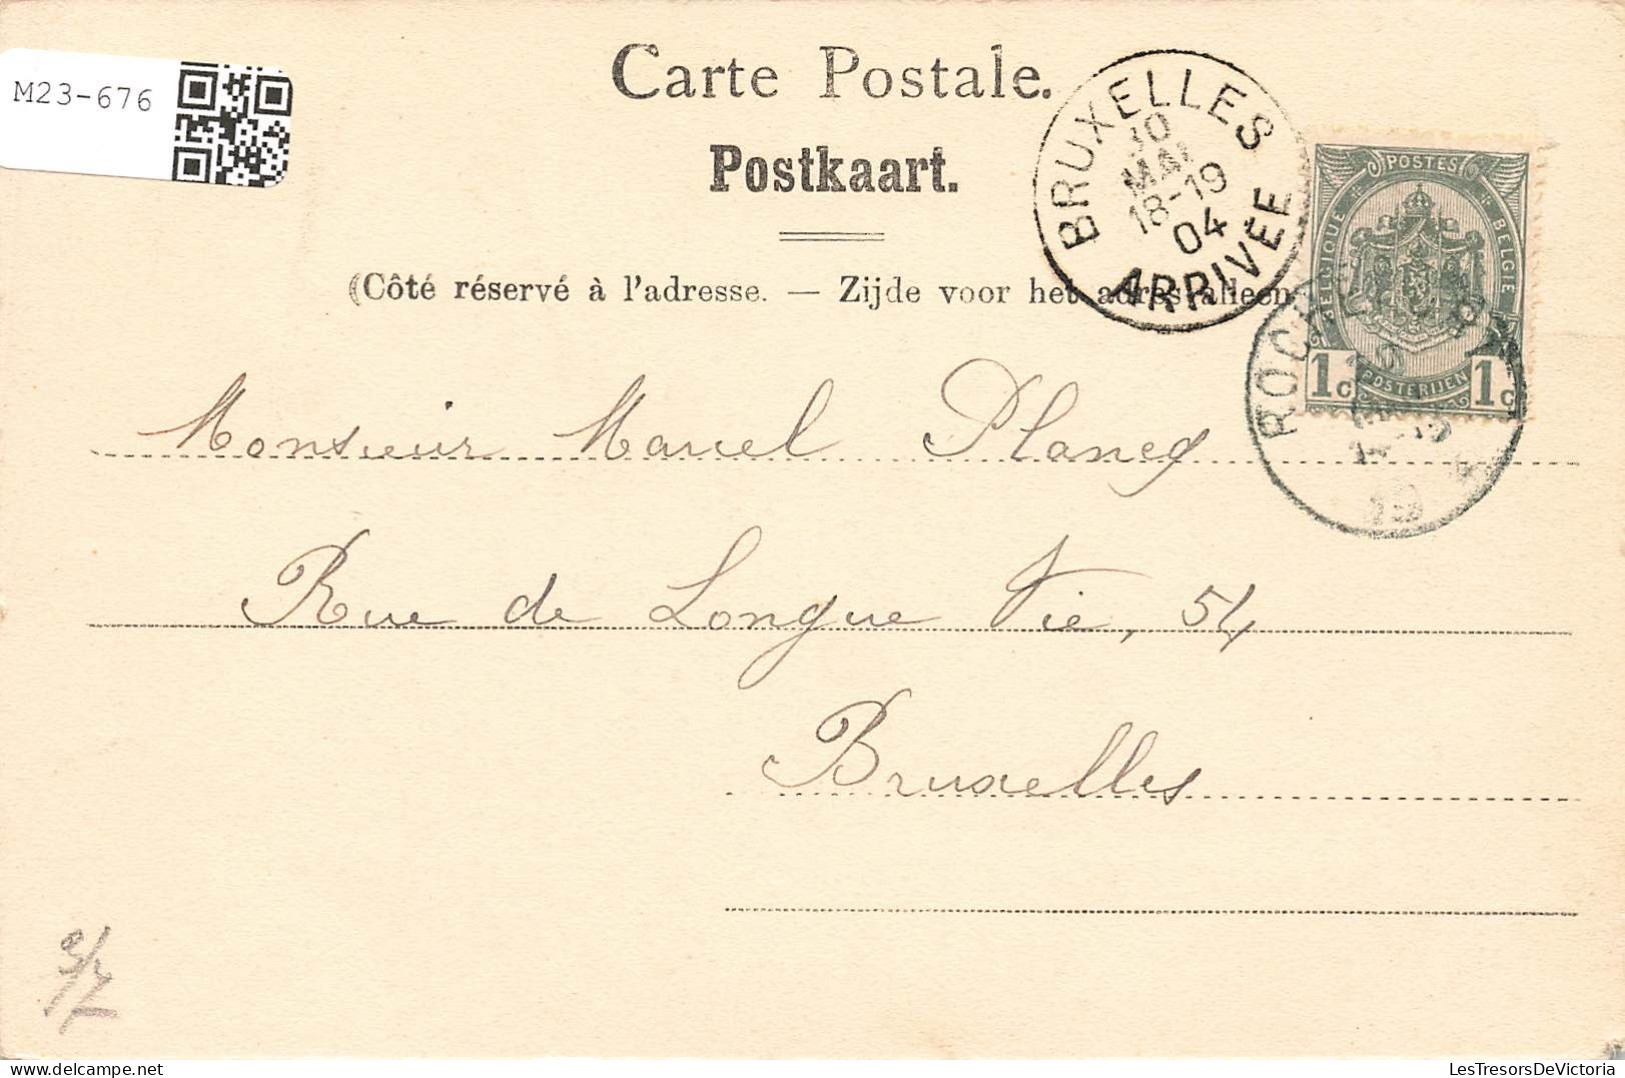 M23-676
Carte Postale.
Postkaart.
(Côté réservé à l'adresse. — Zijde voor het adres alleen
BRUXELLES
30
MAI
18-19
04
ARRIVÉE
POSTES
BELGIQUE BELGIE
1c POSTERIJEN 1c
Monsieur Marcel Planeq
Rue de Longue Vie, 54
Bruxelles
LesTresorsDeVictoria